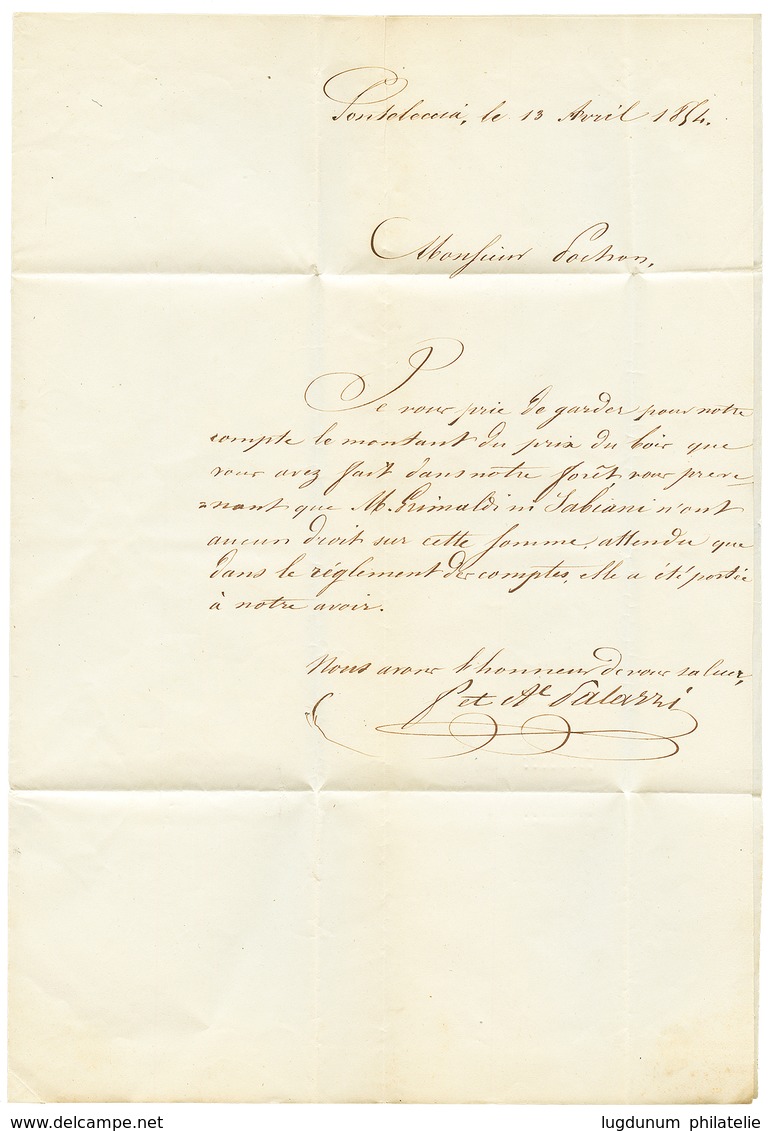 Ponteleccia, le 13 Avril 1854.
Monsieur Pochon,
Je vous prie de garder pour notre
compte le montant du prix du bois que
vous avez fait dans notre forêt vous preve=
=nant que M. Grimaldi ni Sabiani n'ont
aucun droit sur cette somme, attendu que
dans le réglement des comptes, elle a été portée
à notre avoir.
Nous avons l'honneur de vous saluer,
f et Ae Palazzi
www.delcampe.net
lugdunum philatelie